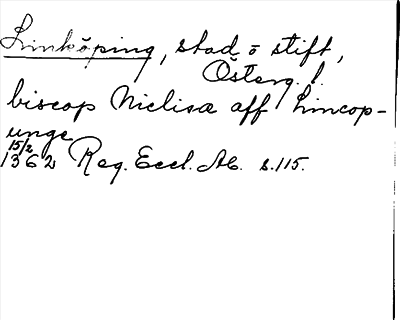 Linköping, stad o stift,
Österg. l.
biscop Niclisa aff Lincop-
unge
15/2
1362 Reg. Eccl. Ab. s. 115.